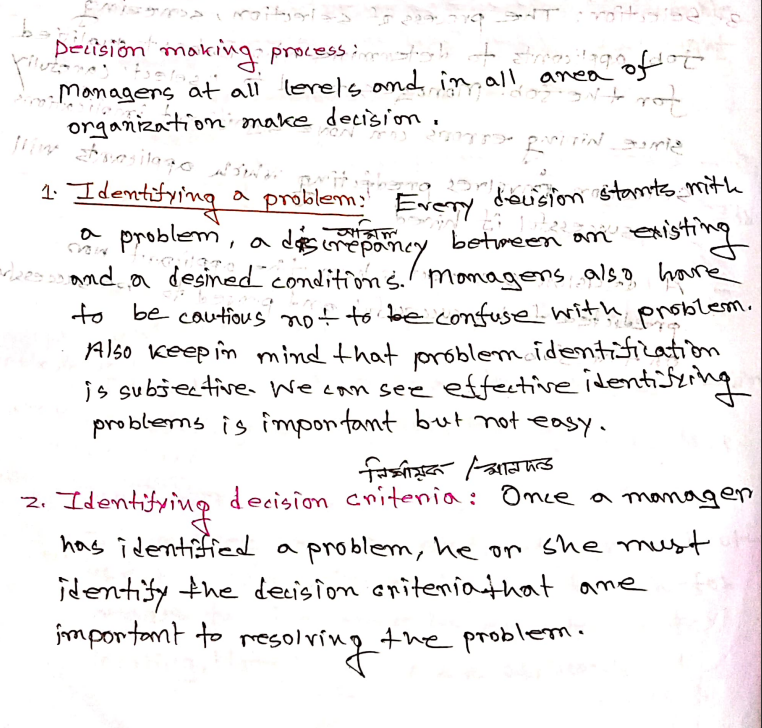 Decision making process:
Managers at all levels and in all area of
organization make decision.
1. Identifying a problem: Every decision starts with
অমিল
a problem, a discrepancy between an existing
and a desired conditions. Managers also have
to be cautious not to be confuse with problem.
Also keep in mind that problem identification
is subjective. We can see effective identifying
problems is important but not easy.
নির্ণায়ক / মানদণ্ড
2. Identifying decision criteria: Once a manager
has identified a problem, he or she must
identify the decision criteria that are
important to resolving the problem.